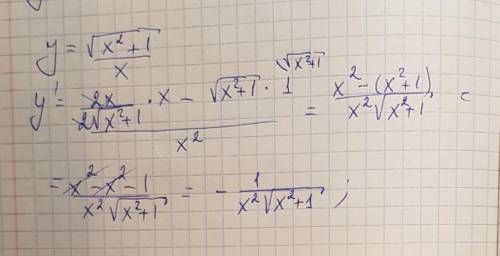 y = √(x²+1) / x
y' = (2x / (2√(x²+1)) · x − √(x²+1) · 1 ^(√(x²+1))) / x² = (x² − (x²+1)) / (x²√(x²+1)) =
= (x² − x² − 1) / (x²√(x²+1)) = − 1 / (x²√(x²+1)) ;